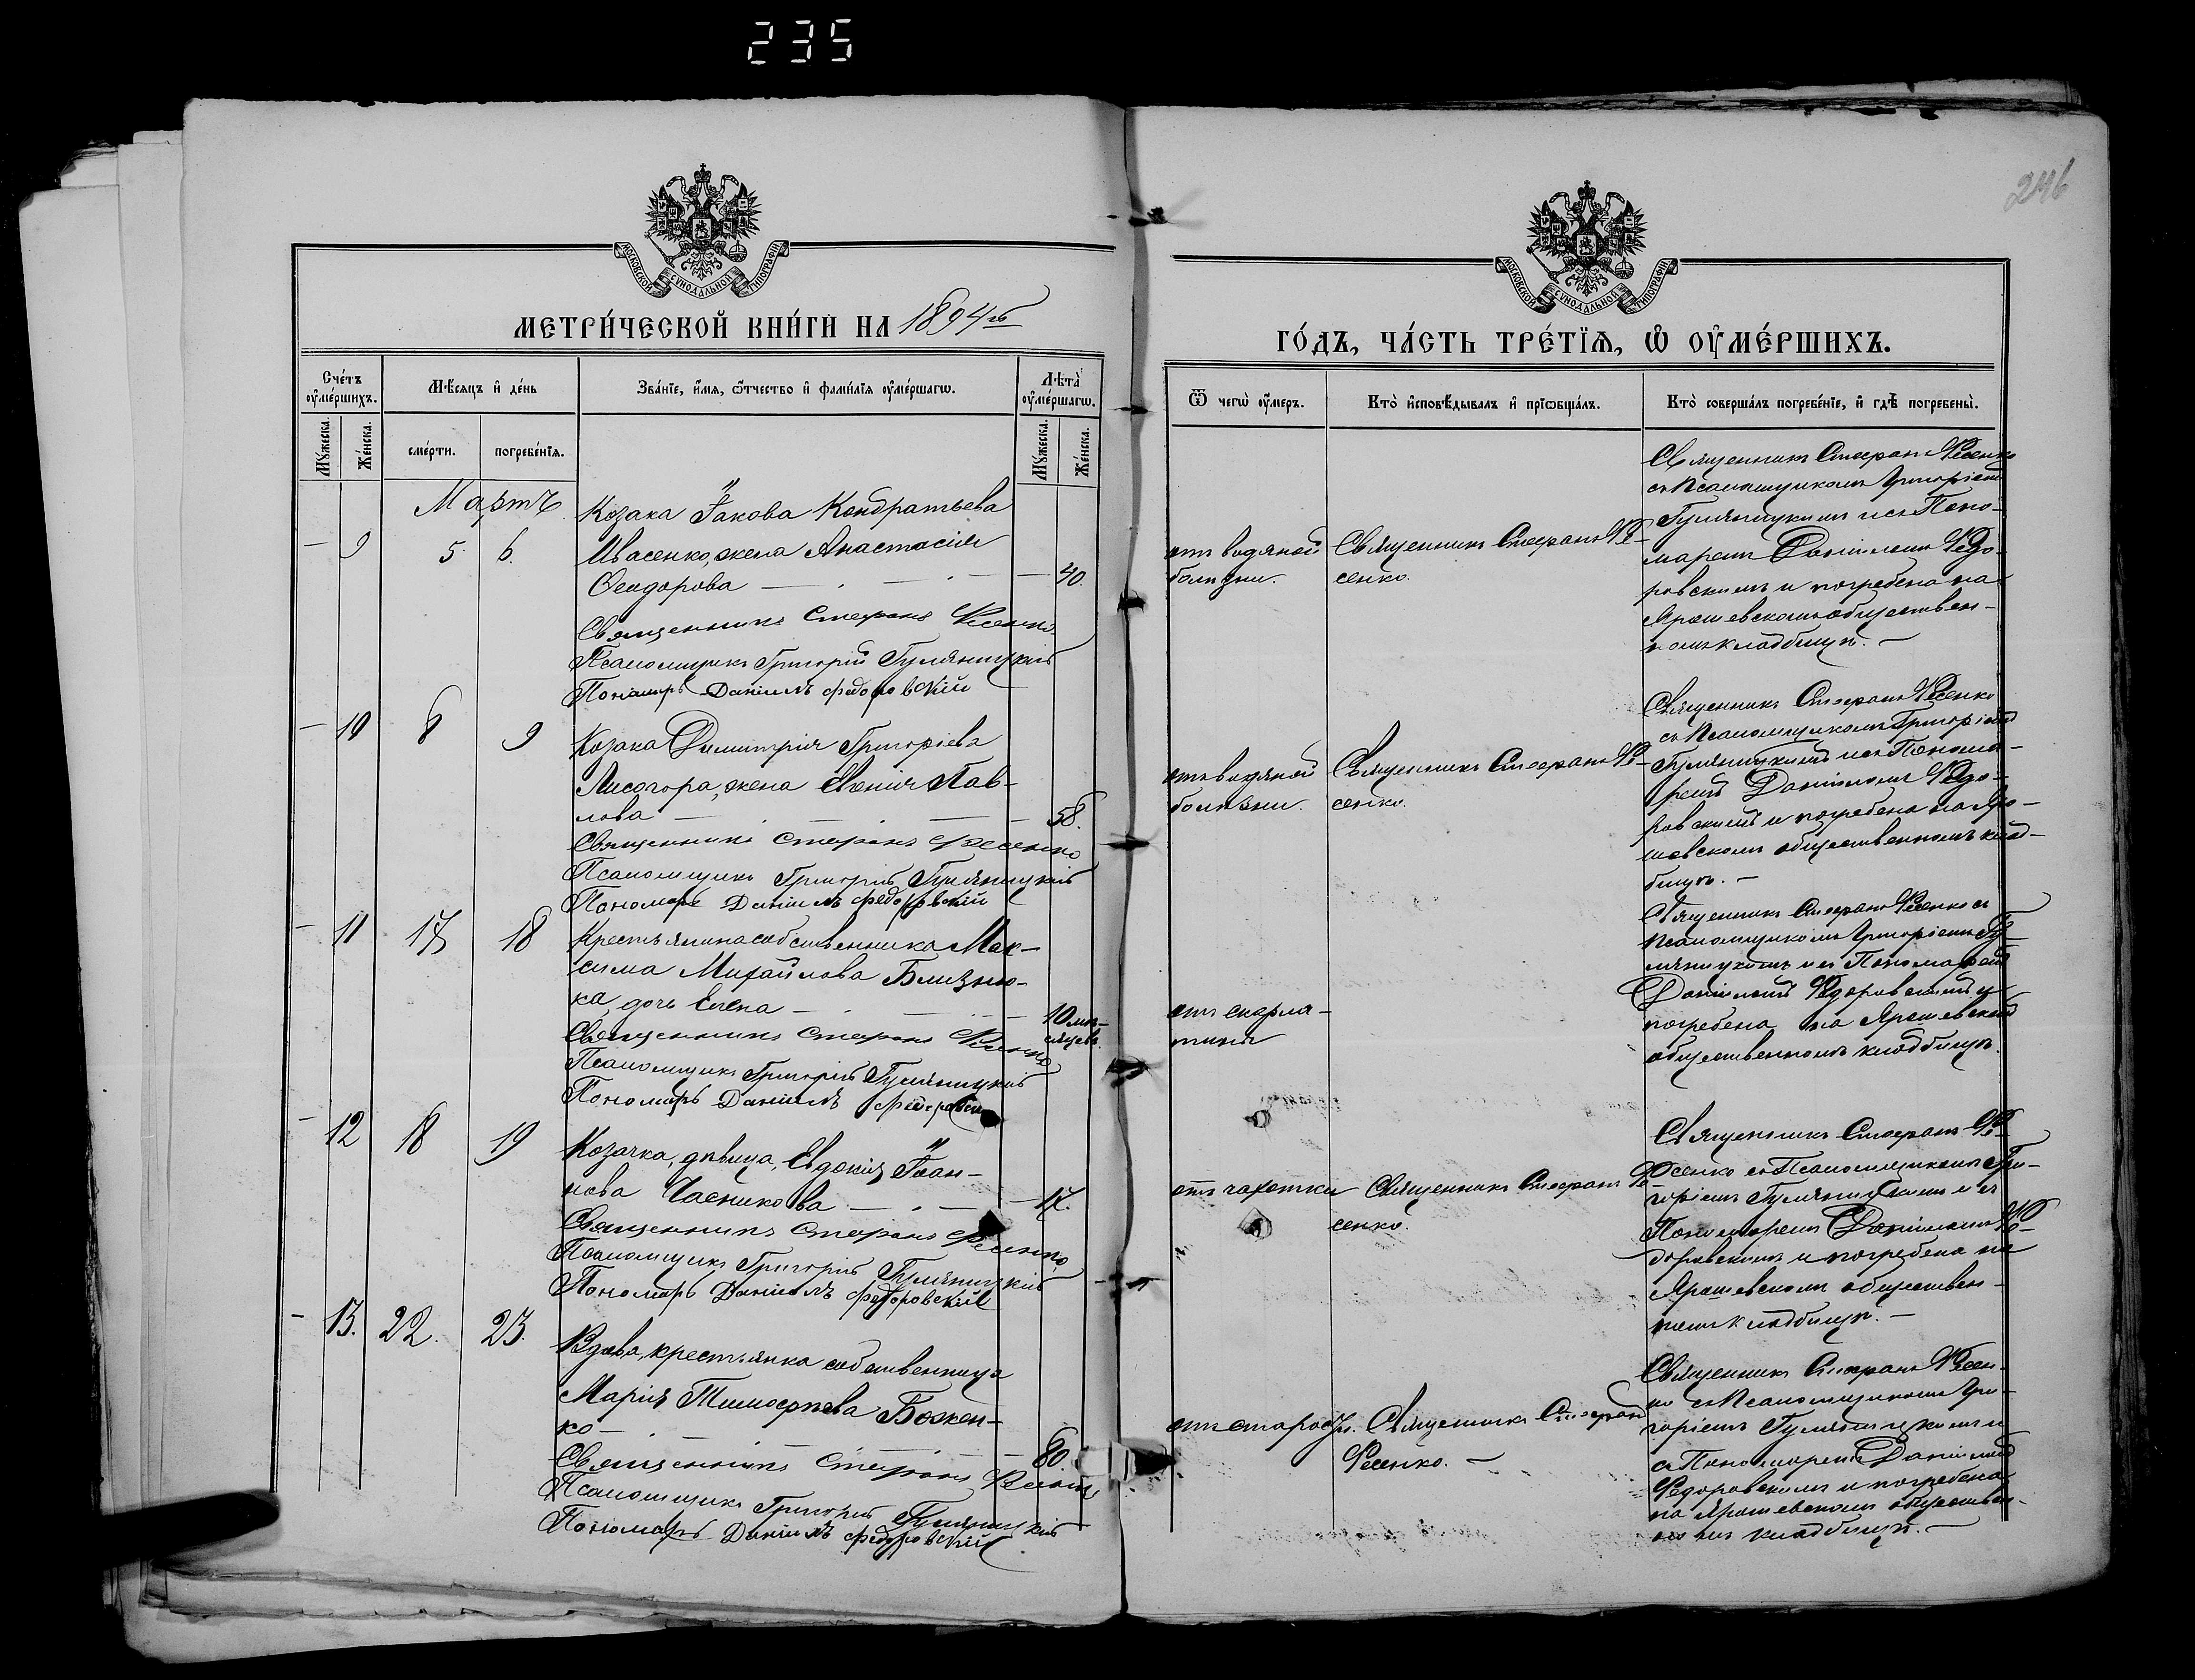 235
246
МОСКОВСКОЙ СУНОДАЛЬНОЙ ТИПОГРАФІИ
МОСКОВСКОЙ СУНОДАЛЬНОЙ ТИПОГРАФІИ
МЕТРИ́ЧЕСКОЙ КНИ́ГИ НА 1894й
ГО́ДЪ, ЧА́СТЬ ТРЕ́ТІѦ, Ѡ ОУМЕ́РШИХЪ.
Сче́тъ оумершихъ.
Мѣсяцъ и де́нь
Зва́ніе, имя, ѿтчество и фами́лія оумершагѡ.
Лѣта̀ оумершагѡ.
Мꙋжеска.
Же́нска.
сме́рти.
погребе́нія.
Мꙋжеска.
Же́нска.
Ѿ чегѡ̀ оумеръ.
Кто̀ исповѣдывалъ и пріѡбща́лъ.
Кто̀ соверша́лъ погребе́ніе, и гдѣ погребены̀.
Мартъ
— 9 5 6.
Козака Іакова Кондратьева
Ивасенко, жена Анастасія
Феодорова — 40.
Священникъ Стефанъ Фесенко
Псаломщикъ Григорій Гуляницкій
Пономарь Даніилъ Федоровскій
отъ водяной
болѣзни.
Священникъ Стефанъ Фе-
сенко.
Священникъ Стефанъ Фесенко
съ Псаломщикомъ Григоріемъ
Гуляницкимъ и съ Поно-
маремъ Даніиломъ Федо-
ровскимъ и погребена на
Ярошевскомъ обществен-
номъ кладбищѣ. —
— 10 8 9
Козака Димитрія Григоріева
Лисогора, жена Евенія Пав-
лова — 58.
Священникъ Стефанъ Фесенко
Псаломщикъ Григорій Гуляницкій
Пономарь Даніилъ Федоровскій
отъ водяной
болѣзни.
Священникъ Стефанъ Фе-
сенко.
Священникъ Стефанъ Фесенко
съ Псаломщикомъ Григоріемъ
Гуляницкимъ и съ Понома-
ремъ Даніиломъ Федо-
ровскимъ и погребена на Яро-
шевскомъ общественномъ клад-
бищѣ. —
— 11 17 18
Крестьянина собственника Мак-
сима Михайлова Близню-
ка, дочь Елена — 10 мѣ-
сяцевъ.
Священникъ Стефанъ Фесенко
Псаломщикъ Григорій Гуляницкій
Пономарь Даніилъ
отъ скарла-
тины
Священникъ Стефанъ Фесенко съ
псаломщикомъ Григоріемъ Гу-
ляницкимъ и съ Пономаремъ
Даніиломъ Федоровскимъ и
погребена на Ярошевскомъ
общественномъ кладбищѣ.
— 12 18 19
Козачка, дѣвица, Евдокія Іоан-
нова Часникова — 17.
Священникъ Стефанъ Фесенко
Псаломщикъ Григорій Гуляницкій
Пономарь Даніилъ Федоровскій
отъ чахотки
Священникъ Стефанъ Фе-
сенко.
Священникъ Стефанъ Фе-
сенко съ Псаломщикомъ Гри-
горіемъ Гуляницкимъ и съ
Пономаремъ Даніиломъ Фе-
доровскимъ и погребена на
Ярошевскомъ обществен-
номъ кладбищѣ. —
— 13. 22. 23.
Вдова, крестьянка собственница
Марія Тимофѣева Божен-
ко — 80.
Священникъ Стефанъ Фесенко
Псаломщикъ Григорій Гуляницкій
Пономарь Даніилъ Федоровскій
отъ старости.
Священникъ Стефанъ
Фесенко. —
Священникъ Стефанъ Фесен-
ко съ Псаломщикомъ Гри-
горіемъ Гуляницкимъ и
съ Пономаремъ Даніиломъ
Федоровскимъ и погребена
на Ярошевскомъ обществен-
номъ кладбищѣ. —